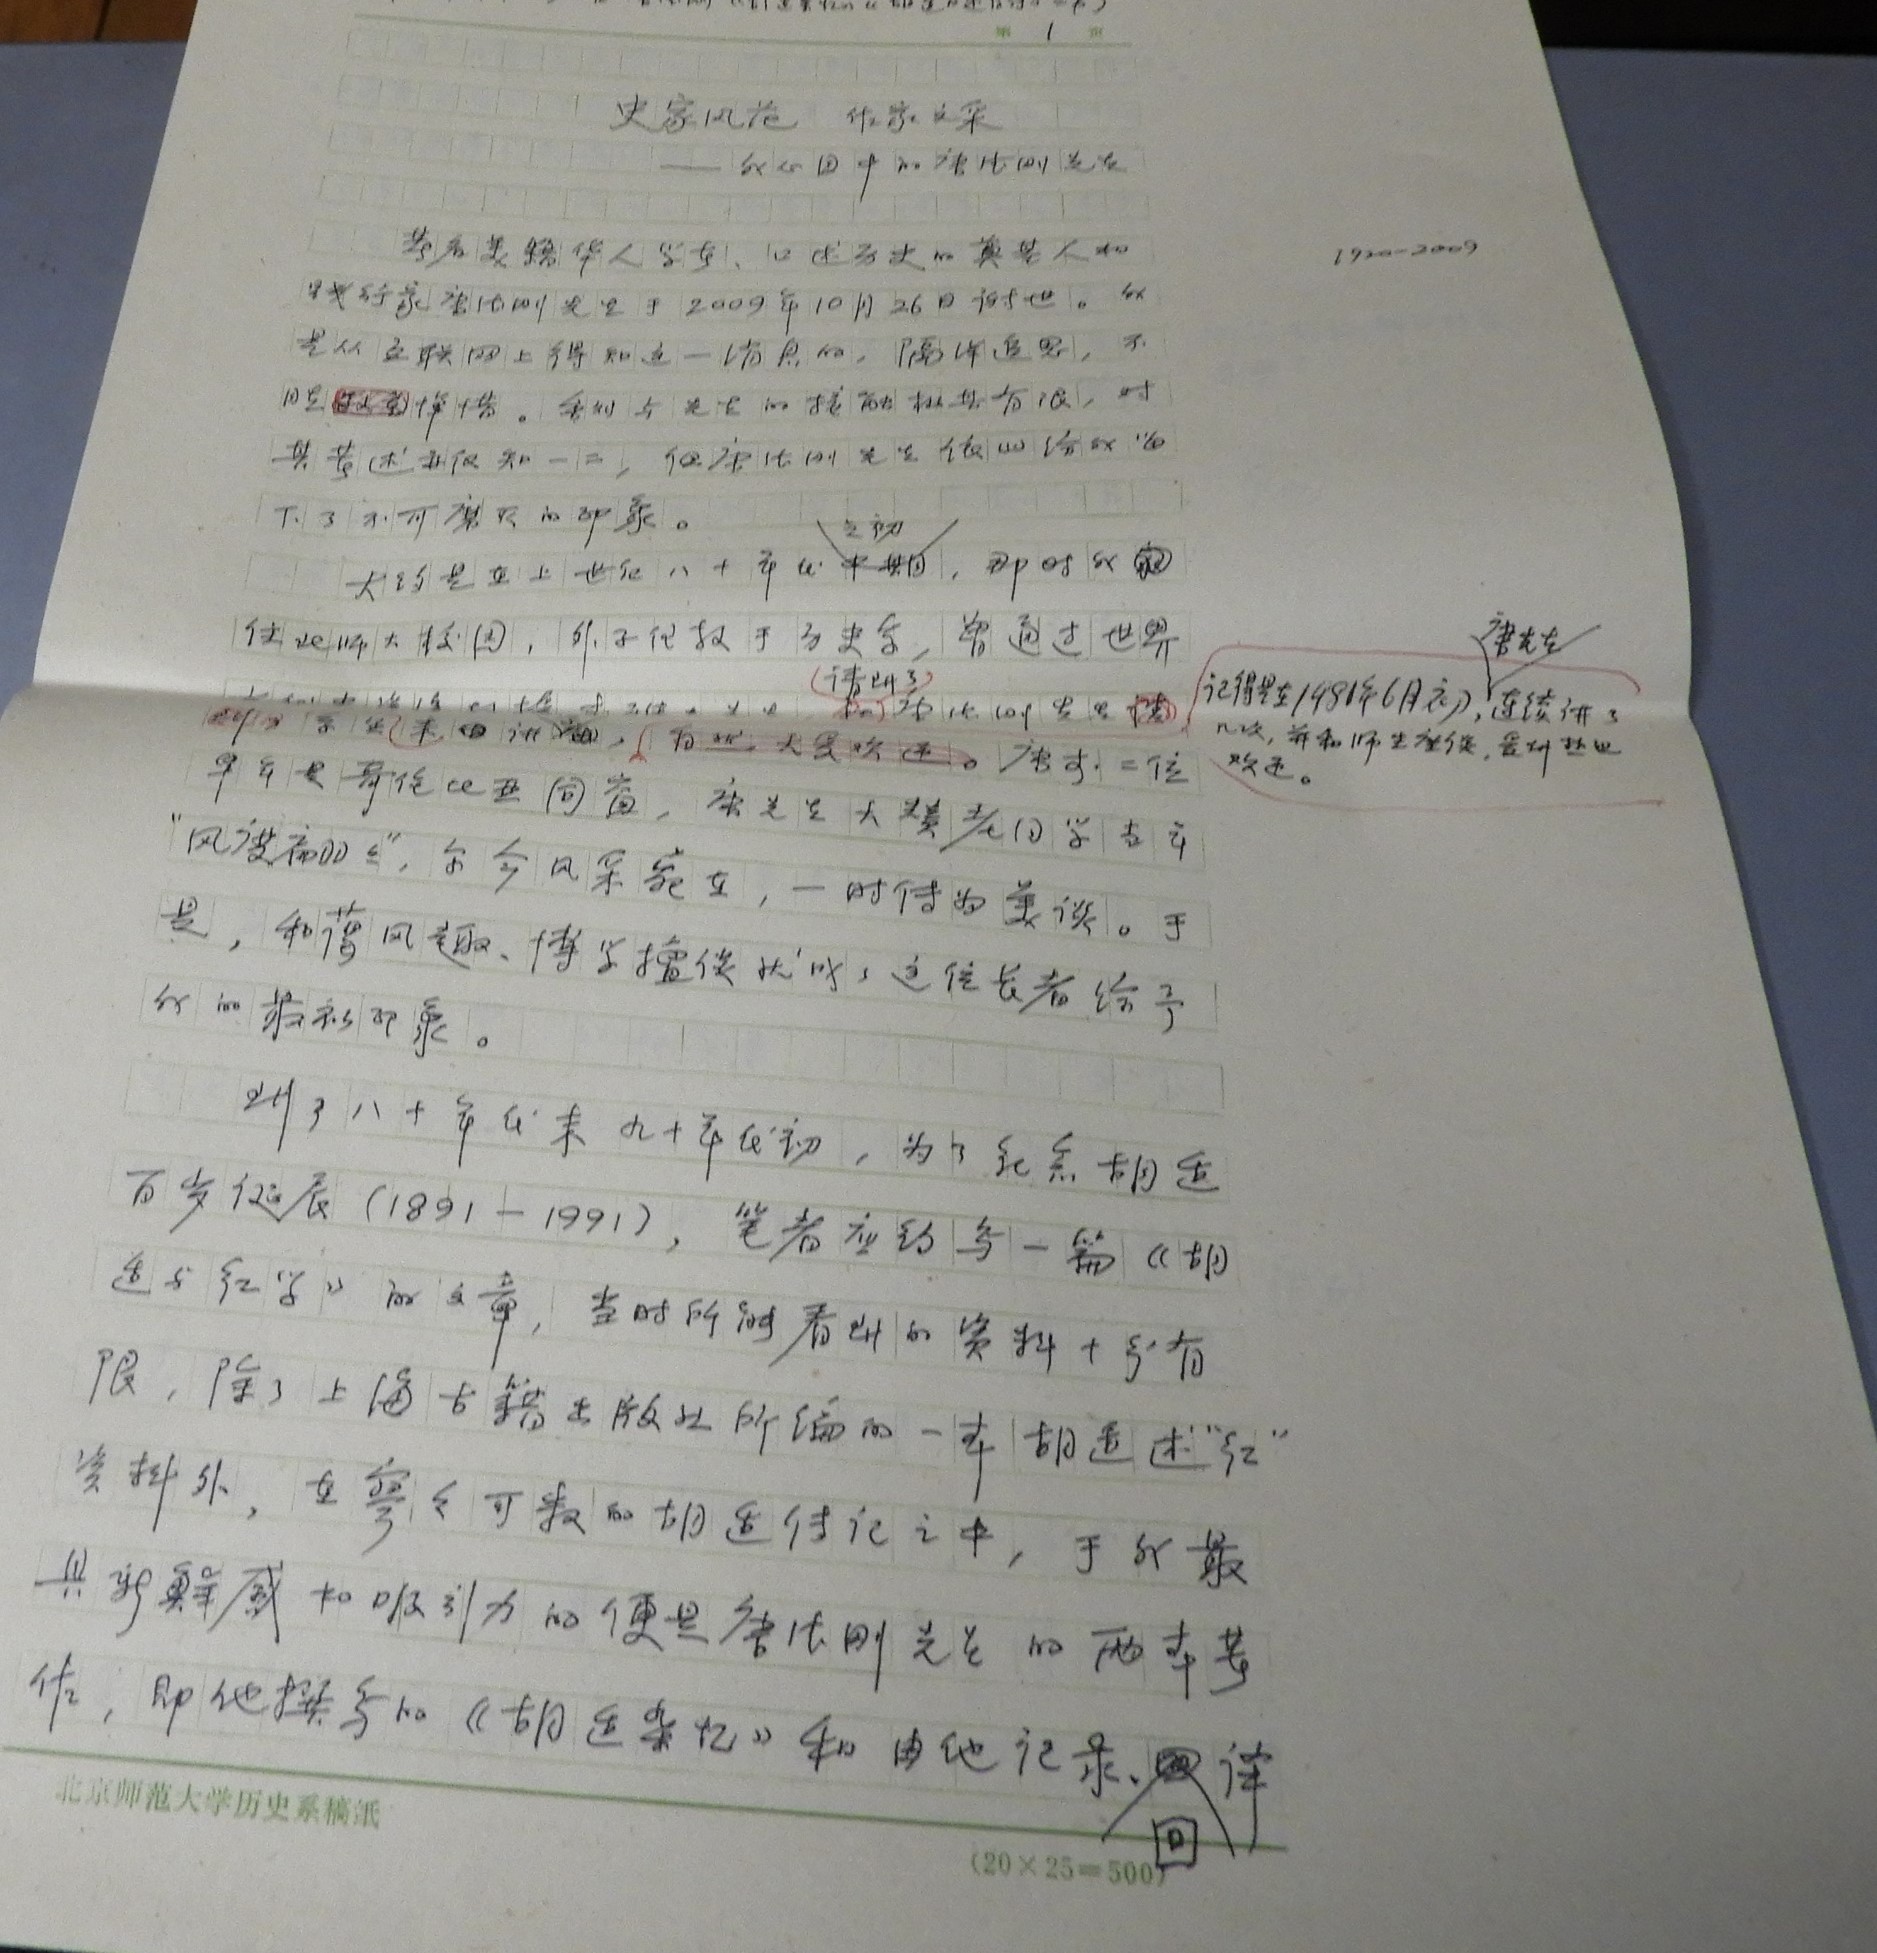 第 1 页
史家风范 作家文采
——我心目中的唐德刚先生
著名美籍华人学者、口述历史的奠基人和
1920-2009
践行家唐德刚先生于2009年10月26日谢世。我
是从互联网上得知这一消息的,隔洋追思,不
胜悼惜。我与先生的接触极其有限,对
其著述亦仅知一二,但唐德刚先生依然给我留
下了不可磨灭的印象。
之初
大约是在上世纪八十年代中期,那时我家
住北师大校园,外子任教于历史系,曾通过世界
唐先生
请到了
唐德刚先生
记得是在1981年6月初,连续讲了
几次,并和师生座谈,受到热烈
欢迎。
学生来讲演,大受欢迎。唐 二位
早年是哥伦比亚同窗,唐先生大赞老同学当年
“风度翩翩”,而今风采宛在,一时传为美谈。于
是,和蔼风趣、博学擅谈就成了这位长者给予
我的最初印象。
到了八十年代末九十年代初,为了纪念胡适
百岁诞辰(1891—1991),笔者应约写一篇《胡
适与红学》的文章,当时所能看到的资料十分有
限,除了上海古籍出版社所编的一本胡适述“红”
资料外,在寥寥可数的胡适传记之中,于我最
具新鲜感和吸引力的便是唐德刚先生的两本著
作,即他撰写的《胡适杂忆》和由他记录、译
北京师范大学历史系稿纸
(20×25=500)